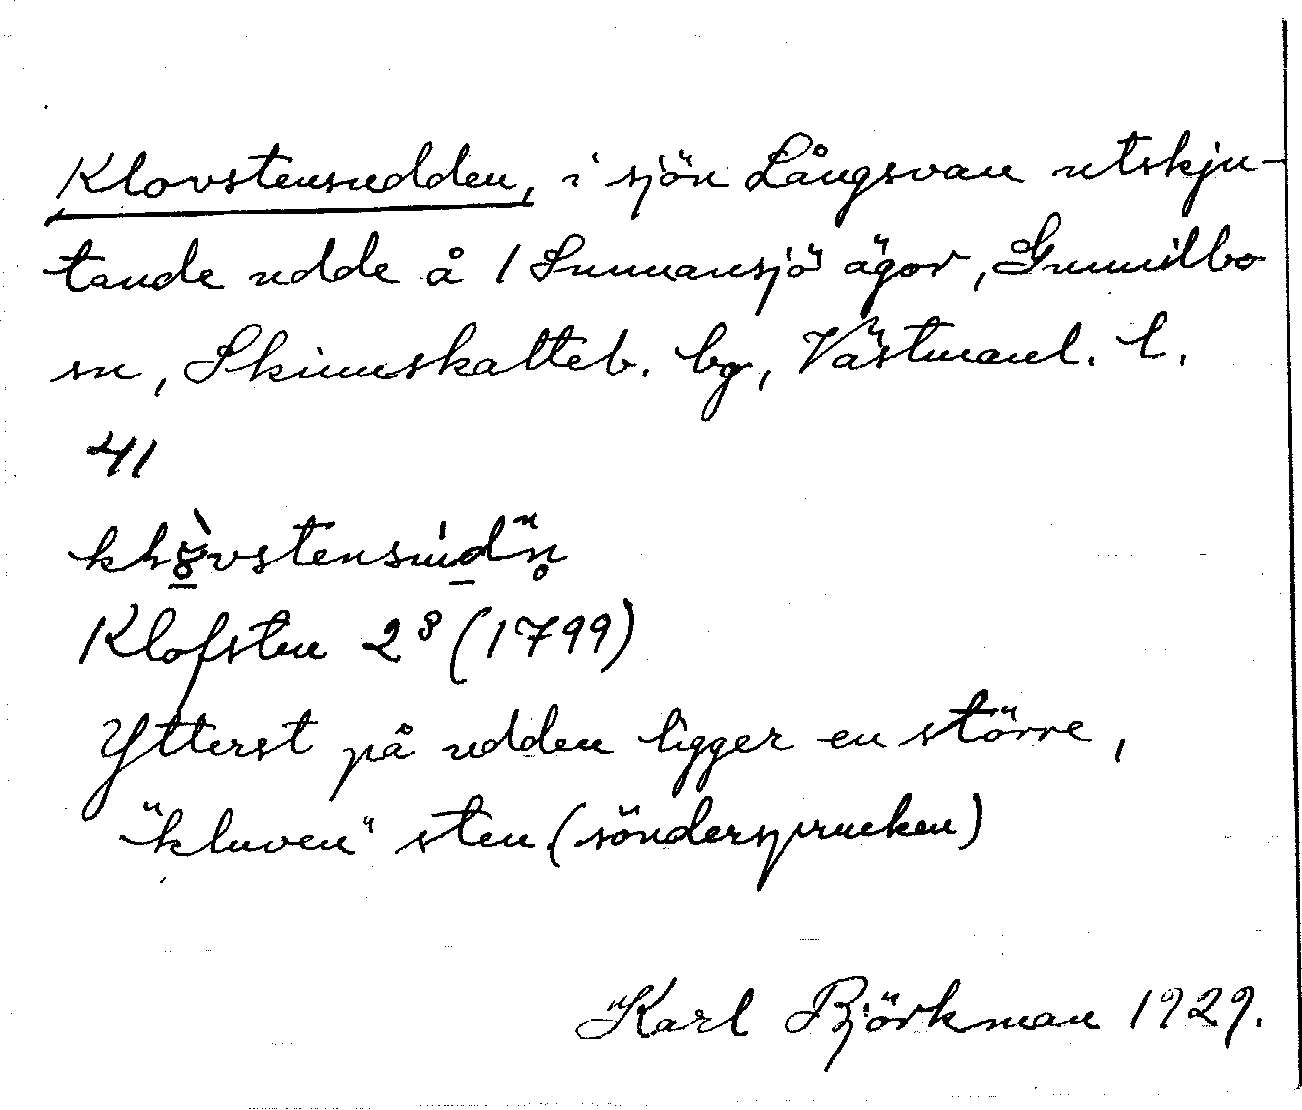 Klovstensudden, i sjön Långsvan utskju-
tande udde å 1 Sunnansjö ägor, Gunnilbo
sn, Skinnskatteb. bg, Västmanl. l.
41
Klofsten 2⁸ (1799)
Ytterst på udden ligger en större,
"kluven" sten (söndersprucken)
Karl Björkman 1929.